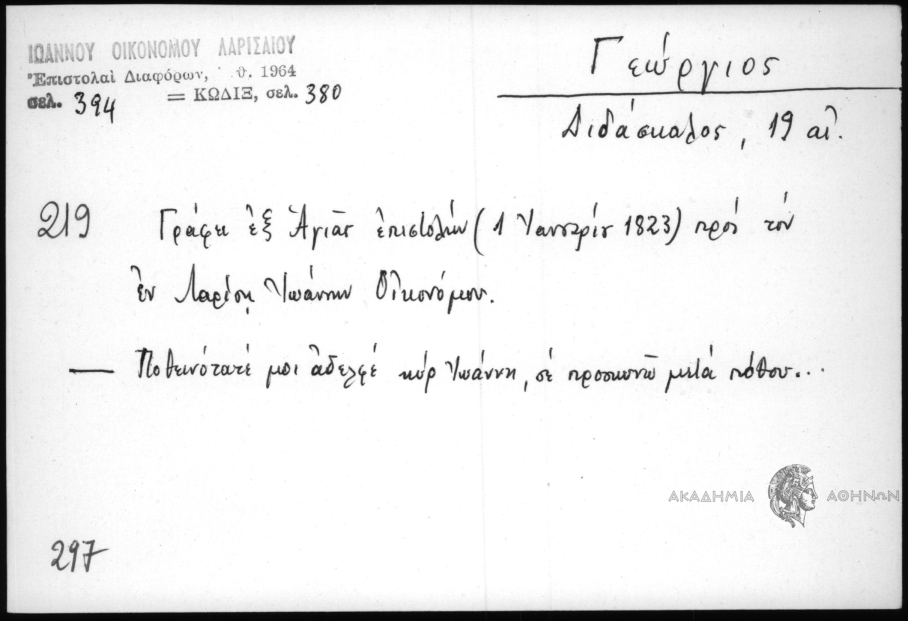 ΙΩΑΝΝΟΥ ΟΙΚΟΝΟΜΟΥ ΛΑΡΙΣΑΙΟΥ
Ἐπιστολαὶ Διαφόρων, θ. 1964
σελ. 394 = ΚΩΔΙΞ, σελ. 380
Γεώργιος
Διδάσκαλος, 19 αἰ.
219 Γράφει ἐξ Ἁγιᾶς ἐπιστολήν (1 Ἰανουαρίου 1823) πρός τόν
ἐν Λαρίσῃ Ἰωάννην Οἰκονόμου.
— Ποθεινότατέ μοι ἀδελφέ κύρ Ἰωάννη, σέ προσκυνῶ μετά πόθου...
ΑΚΑΔΗΜΙΑ ΑΘΗΝΩΝ
297